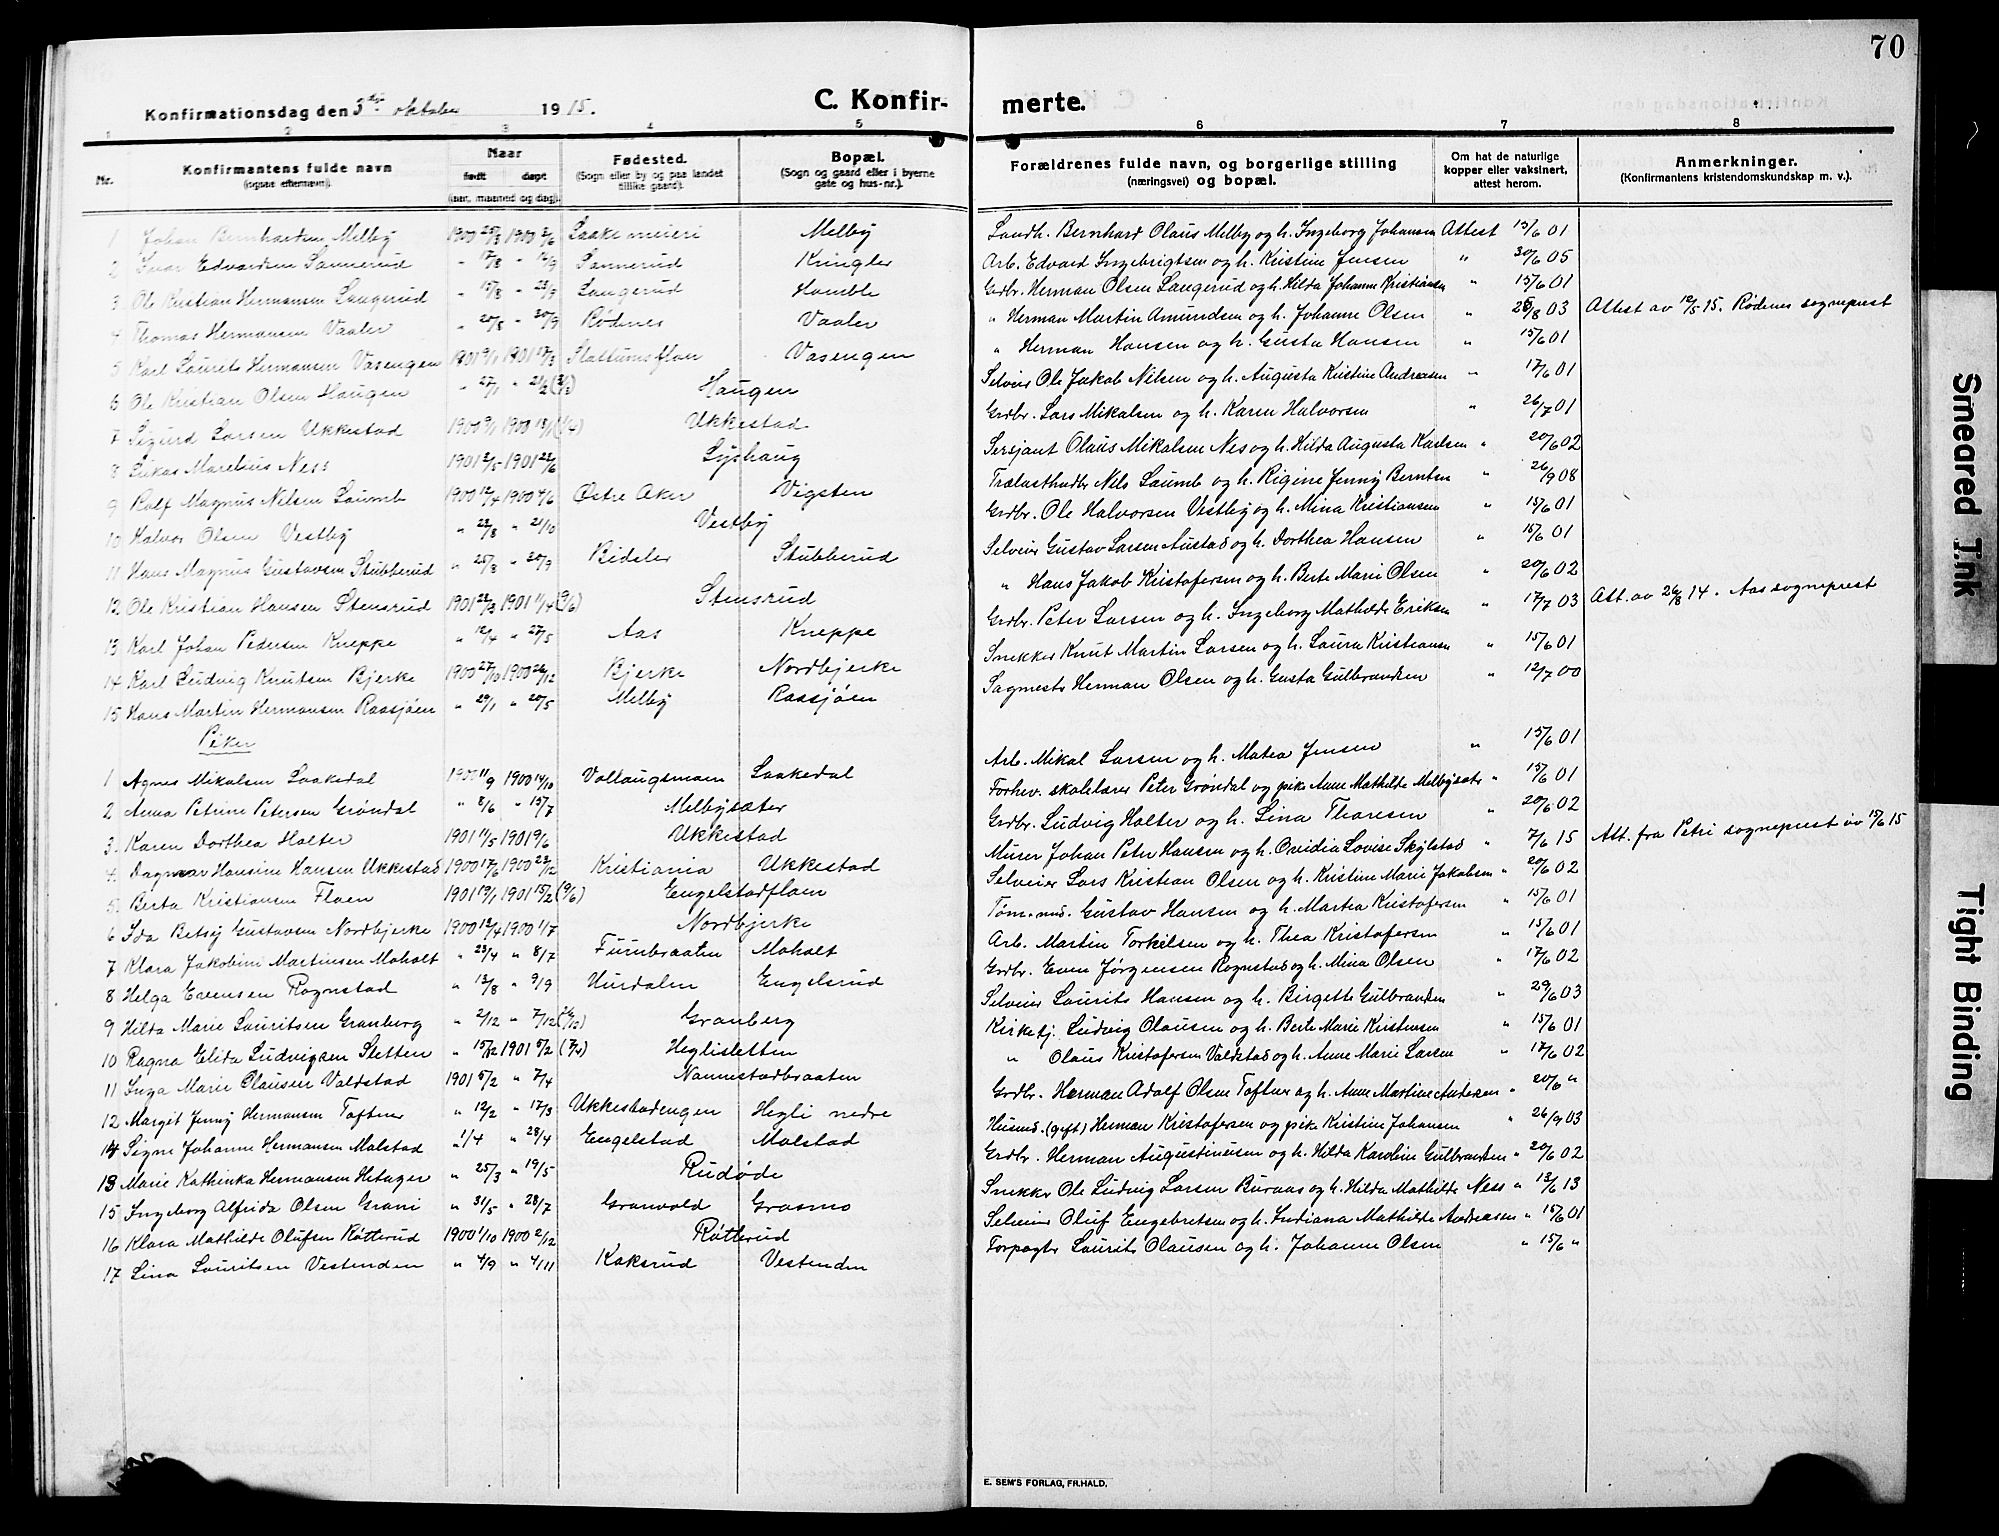 70
Konfirmationsdag den 3die oktober 1915.
C. Konfir-
merte.
1 2 3 4 5 6 7 8
Nr.
Konfirmantens fulde navn (ogsaa efternavn).
Naar født døpt (aar, maaned og dag).
Fødested. (Sogn eller by og paa landet tillike gaard).
Bopæl. (Sogn og gaard eller i byerne gate og hus-nr.).
Forældrenes fulde navn, og borgerlige stilling (næringsvei) og bopæl.
Om hat de naturlige kopper eller vaksinert, attest herom.
Anmerkninger. (Konfirmantens kristendomskundskap m. v.).
1 Johan Bernhardsen Melby 1900 25/3 1900 3/6 Laake meieri Melby Landh. Bernhard Olaus Melby og h. Ingeborg Johansen Attest 15/6 01
2 Ivar Edvardsen Sannerud " 17/8 " 16/9 Sannerud Kringler Arb. Edvard Ingebrigtsen og h. Kristine Jensen " 30/6 05
3 Ole Kristian Hermansen Laugerud " 15/8 " 23/9 Laugerud Homble Grdbr. Herman Olsen Laugerud og h. Hilda Johanne Kristiansen " 15/6 01
4 Thomas Hermansen Vaaler " 20/8 " 30/9 Rødenes Vaaler " Herman Martin Amundsen og h. Johanne Olsen " 25/8 03 Attest av 12/5 15. Rødenes sogneprest
5 Karl Laurits Hermansen Vasengen 1901 9/1 1901 17/3 Slattumsflan Vasengen " Herman Hansen og h. Gusta Hansen " 15/6 01
6 Ole Kristian Olsen Haugen " 27/1 " 21/2 Haugen Selveier Ole Jakob Nilsen og h. Augusta Kristine Andreasen " 17/6 01
7 Sigurd Larsen Ukkestad 1900 9/1 1900 13/1 (1/4) Ukkestad Grdbr. Lars Mikalsen og h. Karen Halvorsen " 26/7 01
8 Lukas Marelius Ness 1901 2/5 1901 23/6 Lyshaug Sersjant Olaus Mikalsen Nes og h. Hilda Augusta Karlsen " 20/6 02
9 Rolf Magnus Nilsen Laumb 1900 12/4 1900 4/6 Østre Aker Vigsten Trælasthndlr Nils Laumb og h. Rigine Jenny Berntsen " 26/9 08
10 Halvor Olsen Vestby " 23/8 " 21/10 Vestby Grdbr. Ole Halvorsen Vestby og h. Mina Kristiansen " 15/6 01
11 Hans Magnus Gustavsen Stubberud " 25/8 " 30/9 Bideler Stubberud Selveier Gustav Larsen Austad og h. Dorthea Hansen " 15/6 01
12. Ole Kristian Hansen Stensrud 1901 23/3 1901 11/4 (9/6) Stensrud " Hans Jakob Kristofersen og h. Berte Marie Olsen " 20/6 02
13 Karl Johan Pedersen Kneppe " 12/4 " 27/5 Aas Kneppe Grdbr. Peter Larsen og h. Ingeborg Mathilde Eriksen " 17/7 03 Att. av 26/8 14. Aas sogneprest
14 Karl Ludvig Knutsen Bjerke 1900 27/10 1900 26/12 Bjerke Nordbjerke Snekker Knut Martin Larsen og h. Laura Kristiansen " 15/6 01
15 Hans Martin Hermansen Raasjøen " 29/1 " 20/5 Melby Raasjøen Sagmester Herman Olsen og h. Gusta Gulbrandsen " 12/7 00
Piker
1 Agnes Mikalsen Laakedal 1900 11/9 1900 14/10 Vollaugsmoen Laakedal Arb. Mikal Larsen og h. Matea Jensen " 15/6 01
2 Anna Petrine Petersen Grøndal " 8/6 " 15/7 Melbysæter Forhev. skolelærer Peter Grøndal og pike Anne Mathilde Melbysæter " 15/6 01
3. Karen Dorthea Holter 1901 11/5 1901 9/6 Ukkestad Grdbr. Ludvig Holter og h. Lina Thoresen " 20/6 02
4. Dagmar Hansine Hansen Ukkestad 1900 17/6 1900 23/12 Kristiania Ukkestad Murer Johan Peter Hansen og h. Ovidia Lovise Skjlstad " 7/6 15 Att. fra Petri sogneprest av 15/6 15
5. Berta Kristiansen Flaen 1901 19/1 1901 15/2 (9/6) Engelstadflaen Selveier Lars Kristian Olsen og h. Kristine Marie Jakobsen " 20/6 02
6 Ida Betsy Gustavsen Nordbjerke 1900 12/4 1900 1/7 Nordbjerke Tøm.md. Gustav Hansen og h. Martea Kristofersen " 15/6 01
7 Klara Jakobine Martinsen Moholt " 23/4 " 8/7 Furubraaten Moholt Arb. Martin Torkelsen og h. Thea Kristofersen " 15/6 01
8 Helga Evensen Rognstad " 13/8 " 9/9 Hurdalen Engelsrud Grdbr. Even Jørgensen Rognstad og h. Mina Olsen " 17/6 02
9 Hilda Marie Lauritsen Granberg " 2/12 " 7/12 (26/12) Granberg Selveier Laurits Hansen og h. Birgette Gulbrandsen " 29/6 03
10 Ragna Elida Ludvigsen Sletten " 15/12 1901 5/2 (7/4) Heglisletten Kirketj. Ludvig Olausen og h. Berte Marie Kristensen " 15/6 01
11 Inga Marie Olausen Valdstad 1901 5/2 " 7/4 Nannestadbraaten " Olaus Kristofersen Valdstad og h. Anne Marie Larsen " 17/6 02
12 Margit Jenny Hermansen Toftner " 12/2 " 17/3 Ukkestadengen Hegli nedre Grdbr. Herman Adolf Olsen Toftner og h. Anne Martine Andersen " 20/6 "
14 Signe Johanne Hermansen Molstad " 1/4 " 28/4 Engelstad Molstad Husmd. (gift) Herman Kristofersen og pike Kristine Johansen " 26/9 03
13 Marie Kathinka Hermansen Hetager " 25/3 " 19/5 Rudøde Grdbr. Herman Augustinusen og h. Hilda Karoline Gulbrandsen " 20/6 02
15 Ingeborg Alfrida Olsen Grani " 31/5 " 28/7 Granvold Grasmo Snekker Ole Ludvig Larsen Buraas og h. Hilda Mathilde Ness " 12/6 13
16 Klara Mathilde Olufsen Røtterud 1900 1/10 1900 2/12 Røtterud Selveier Oluf Engebretsen og h. Indiana Mathilde Andreasen " 15/6 01
17 Lina Lauritsen Vestenden " 4/9 " 4/11 Koksrud Vestenden Forpagter Laurits Olausen og h. Johanne Olsen " 15/6 "
E. SEM'S FORLAG, FR.HALD.
Smeared Ink
Tight Binding